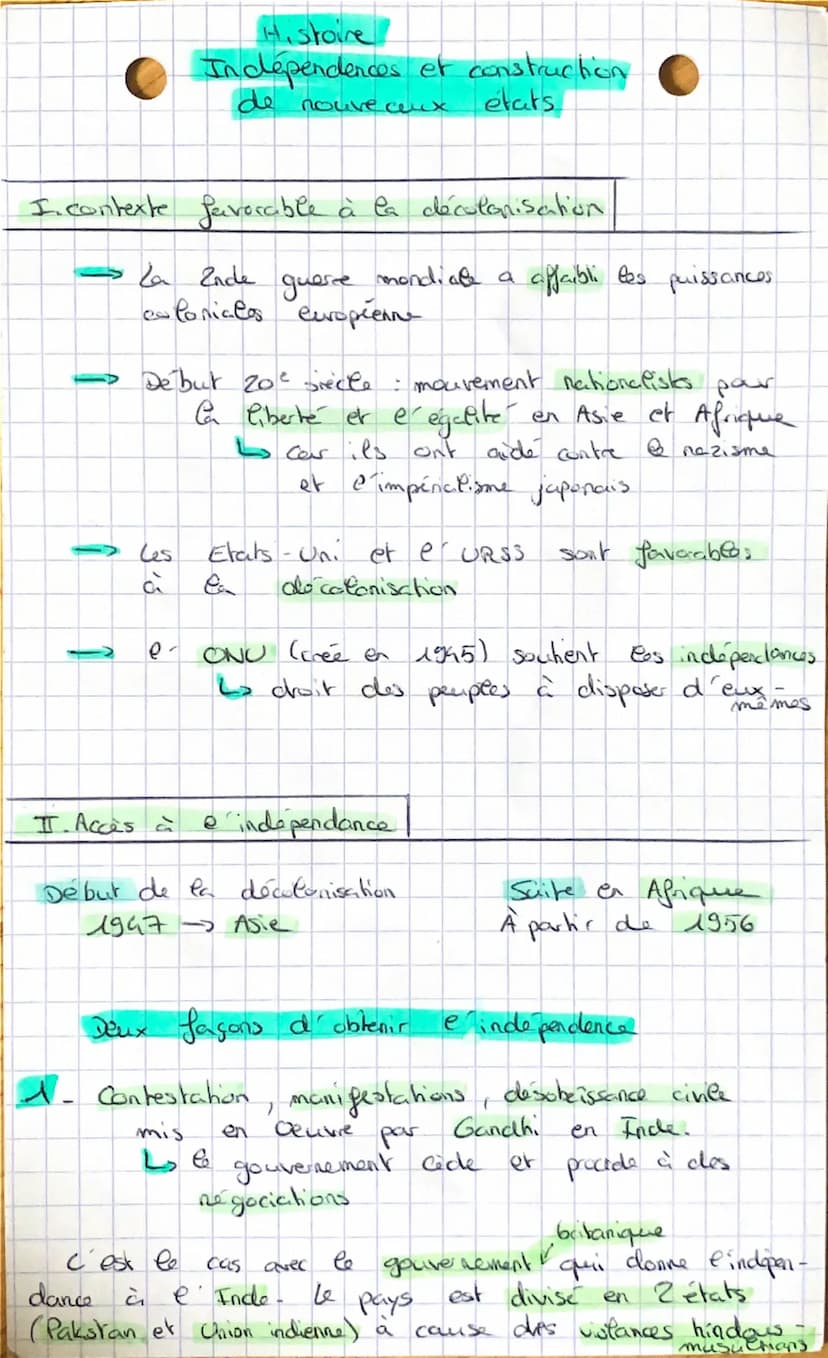 Histoire
Indépendences et construction
de nouveaux états
I. contexte favorable à la décolonisation
→ La 2nde guerre mondiale a affaibli les puissances
coloniales européenne
→ Début 20e siècle : mouvement nationalists pour
la liberté et l'égalité en Asie et Afrique
↳ car ils ont aidé contre le nazisme
et l'impérialisme japonais
→ Les Etats-Uni et l'URSS sont favorables
à la décolonisation
→ l' ONU (créé en 1945) soutient les indépendances
↳ droit des peuples à disposer d'eux-
mêmes
II. Accès à l'indépendance
Début de la décolonisation
1947 → Asie
Suite en Afrique
À partir de 1956
Deux façons d'obtenir l'indépendence
1- Contestation, manifestations, désobeissance civile
mis en oeuvre par Gandhi en Inde.
↳ le gouvernement cède et procède à des
négociations
britanique
C'est le cas avec le gouvernement qui donne l'indépen-
dance à l'Inde. Le pays est divisé en 2 états
(Pakstan et Union indienne) à cause des violances hindous-
musulmans